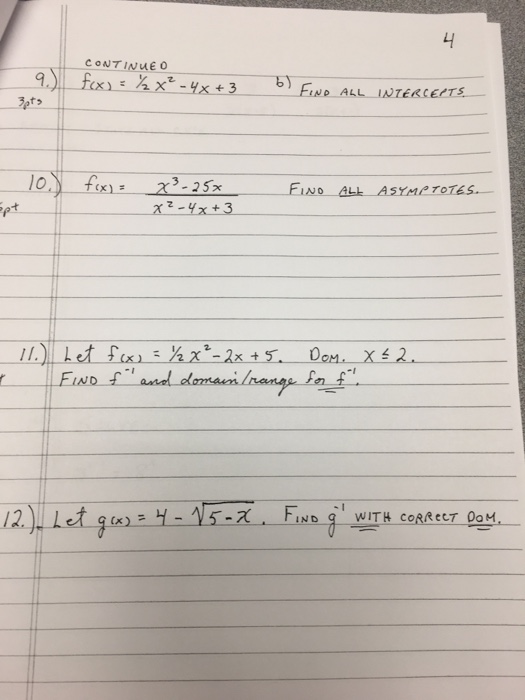 4
CONTINUED
9.) f(x) = ½ x² - 4x + 3 b) FIND ALL INTERCEPTS
3pts
10.) f(x) = x³ - 25x FIND ALL ASYMPTOTES.
pt x² - 4x + 3
11.) Let f(x) = ½ x² - 2x + 5. DOM. X ≤ 2.
FIND f⁻¹ and domain/range for f⁻¹.
12.) Let g(x) = 4 - √5-x. FIND g⁻¹ WITH CORRECT DOM.